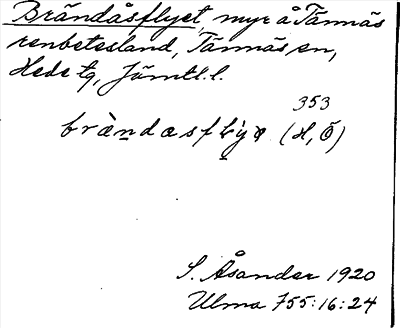 Brändåsflyet, myr å Tännäs
renbetesland, Tännäs sn,
Hede tg, Jämtl. l.
353
brǹndasflyə (H, Ö)
S. Åsander 1920
Ulma 755:16:24